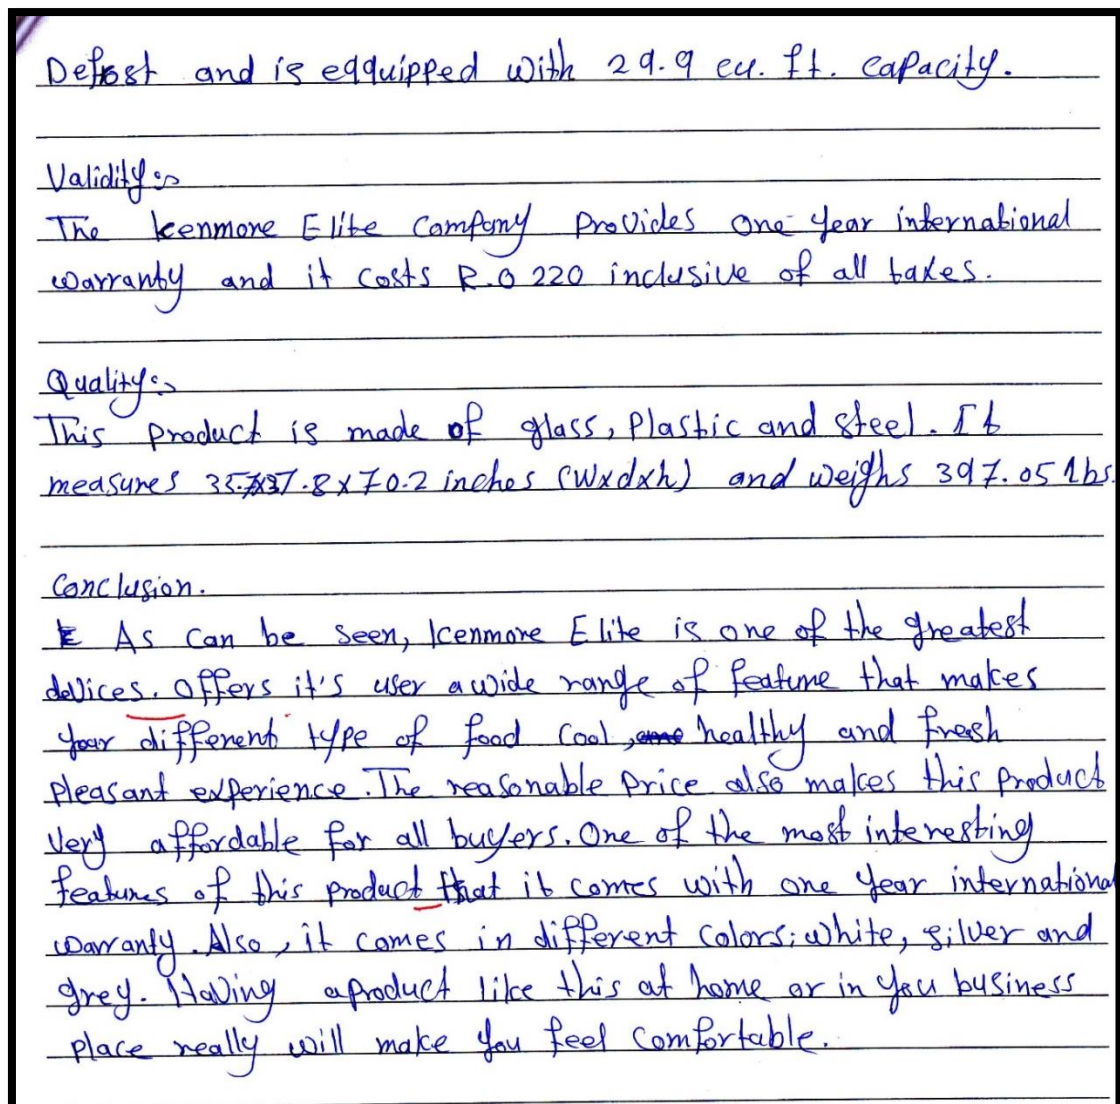 Defrost and is eqquipped with 29.9 cu. ft. capacity.
Validity:
The Kenmore Elite Company provides one year international
warranty and it costs R.O 220 inclusive of all taxes.
Quality:
This product is made of glass, plastic and steel. It
measures 35.7x37.8x70.2 inches (wxdxh) and weighs 397.05 lbs.
Conclusion.
As can be seen, Kenmore Elite is one of the greatest
devices. offers it's user a wide range of feature that makes
your different type of food cool, healthy and fresh
pleasant experience. The reasonable price also makes this product
very affordable for all buyers. One of the most interesting
features of this product that it comes with one year international
warranty. Also, it comes in different colors; white, silver and
grey. Having aproduct like this at home or in you business
place really will make you feel comfortable.